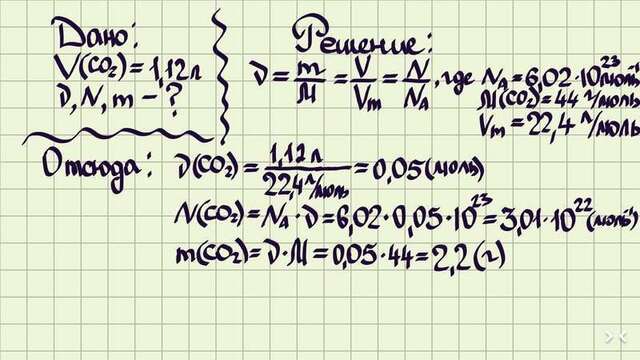 Дано:
V(CO₂)=1,12л
ν, N, m – ?
Решение:
ν = m/M = V/Vm = N/NA, где NA=6,02·10²³моль⁻¹
M(CO₂)=44 г/моль
Vm=22,4 л/моль
Отсюда: ν(CO₂)= 1,12л / 22,4 л/моль =0,05(моль)
N(CO₂)=NA·ν=6,02·0,05·10²³=3,01·10²² (моль⁻¹)
m(CO₂)=ν·M=0,05·44=2,2(г)